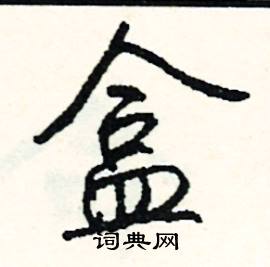 盒
词典网